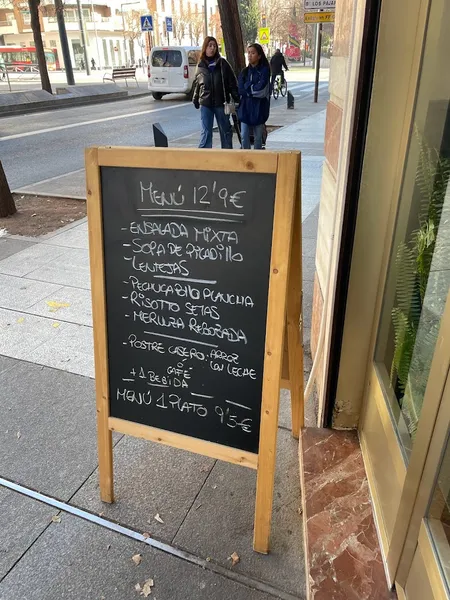 LOS PÁJAR
MENÚ 12'9€
- ENSALADA MIXTA
- SOPA DE PICADILLO
- LENTEJAS
- PECHUGA POLLO PLANCHA
- RISOTTO SETAS
- MERLUZA REBOZADA
- POSTRE CASERO: ARROZ CON LECHE
Ó CAFÉ
+ 1 BEBIDA
MENÚ 1 PLATO 9'5€